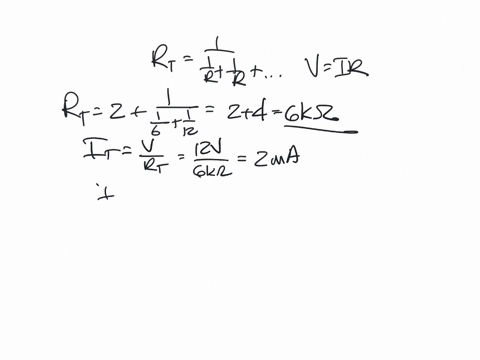 R_T = 1/(1/R + 1/R + ...) V=IR
R_T = 2 + 1/(1/6 + 1/12) = 2+4 = 6kΩ
I_T = V/R_T = 12V/6kΩ = 2mA